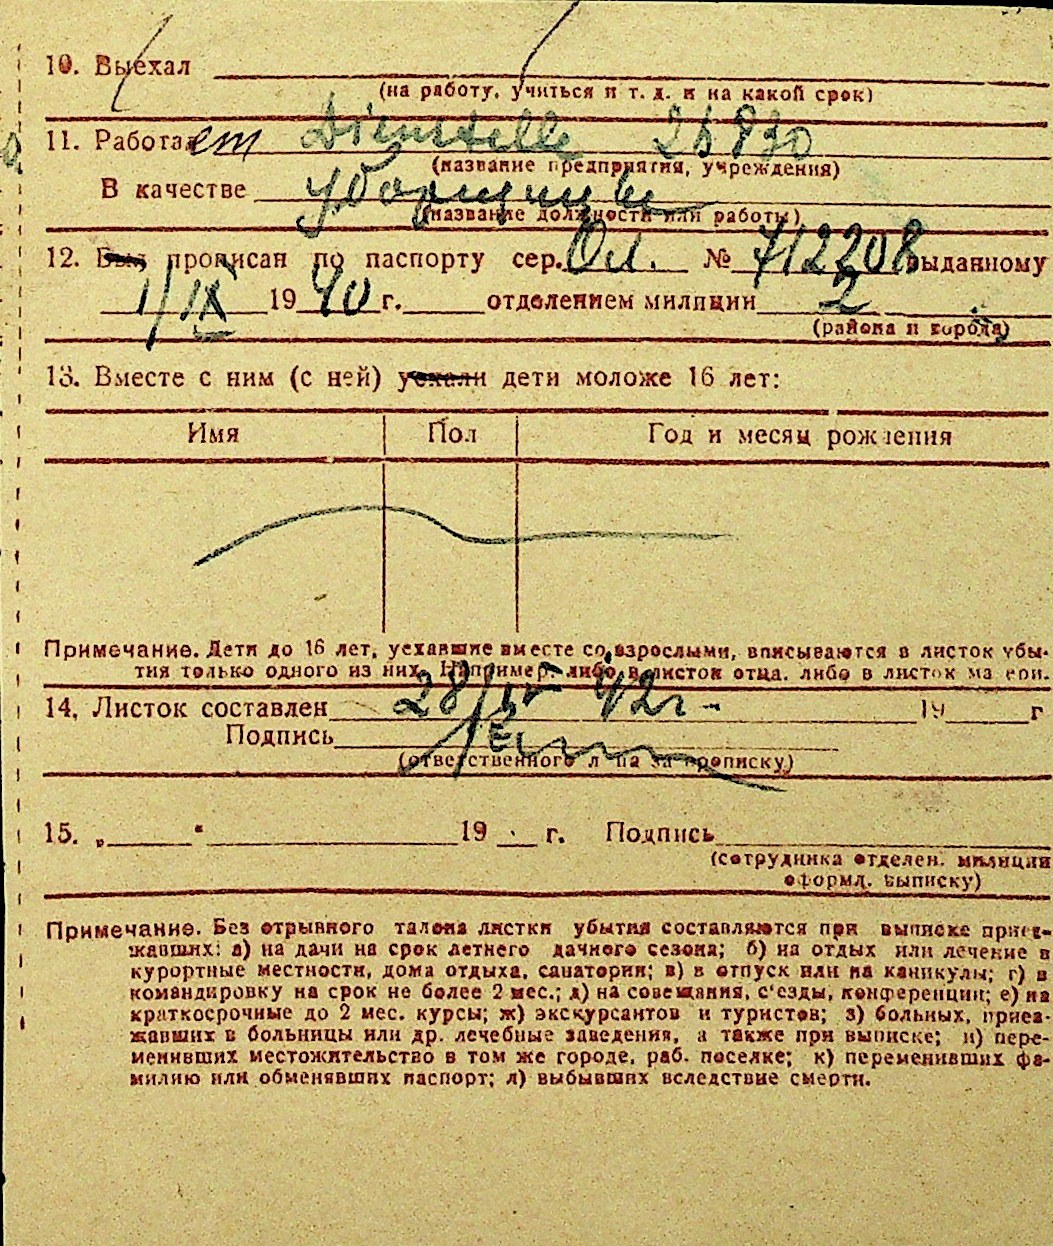 10. Выехал
(на работу, учиться и т. д. и на какой срок)
11. Работает Dienstelle 26830
(название предприятия, учреждения)
В качестве уборщицы
(название должности или работы)
12. Был прописан по паспорту сер. Ол. № 712208 выданному
1/IX 1940 г. отделением милиции 2
(района и города)
13. Вместе с ним (с ней) уехали дети моложе 16 лет:
Имя Пол Год и месяц рождения
Примечание. Дети до 16 лет, уехавшие вместе со взрослыми, вписываются в листок убы-
тия только одного из них. Например: либо в листок отца, либо в листок матери.
14. Листок составлен 28/IV 42 г. 19 г
Подпись
(ответственного лица за прописку)
15. „ “ 19 г. Подпись
(сотрудника отделен. милиции
оформл. выписку)
Примечание. Без отрывного талона листки убытия составляются при выписке приез-
жавших: а) на дачи на срок летнего дачного сезона; б) на отдых или лечение в
курортные местности, дома отдыха, санатории; в) в отпуск или на каникулы; г) в
командировку на срок не более 2 мес.; д) на совещания, с'езды, конференции; е) на
краткосрочные до 2 мес. курсы; ж) экскурсантов и туристов; з) больных, приез-
жавших в больницы или др. лечебные заведения, а также при выписке; и) пере-
менивших местожительство в том же городе, раб. поселке; к) переменивших фа-
милию или обменявших паспорт; л) выбывших вследствие смерти.